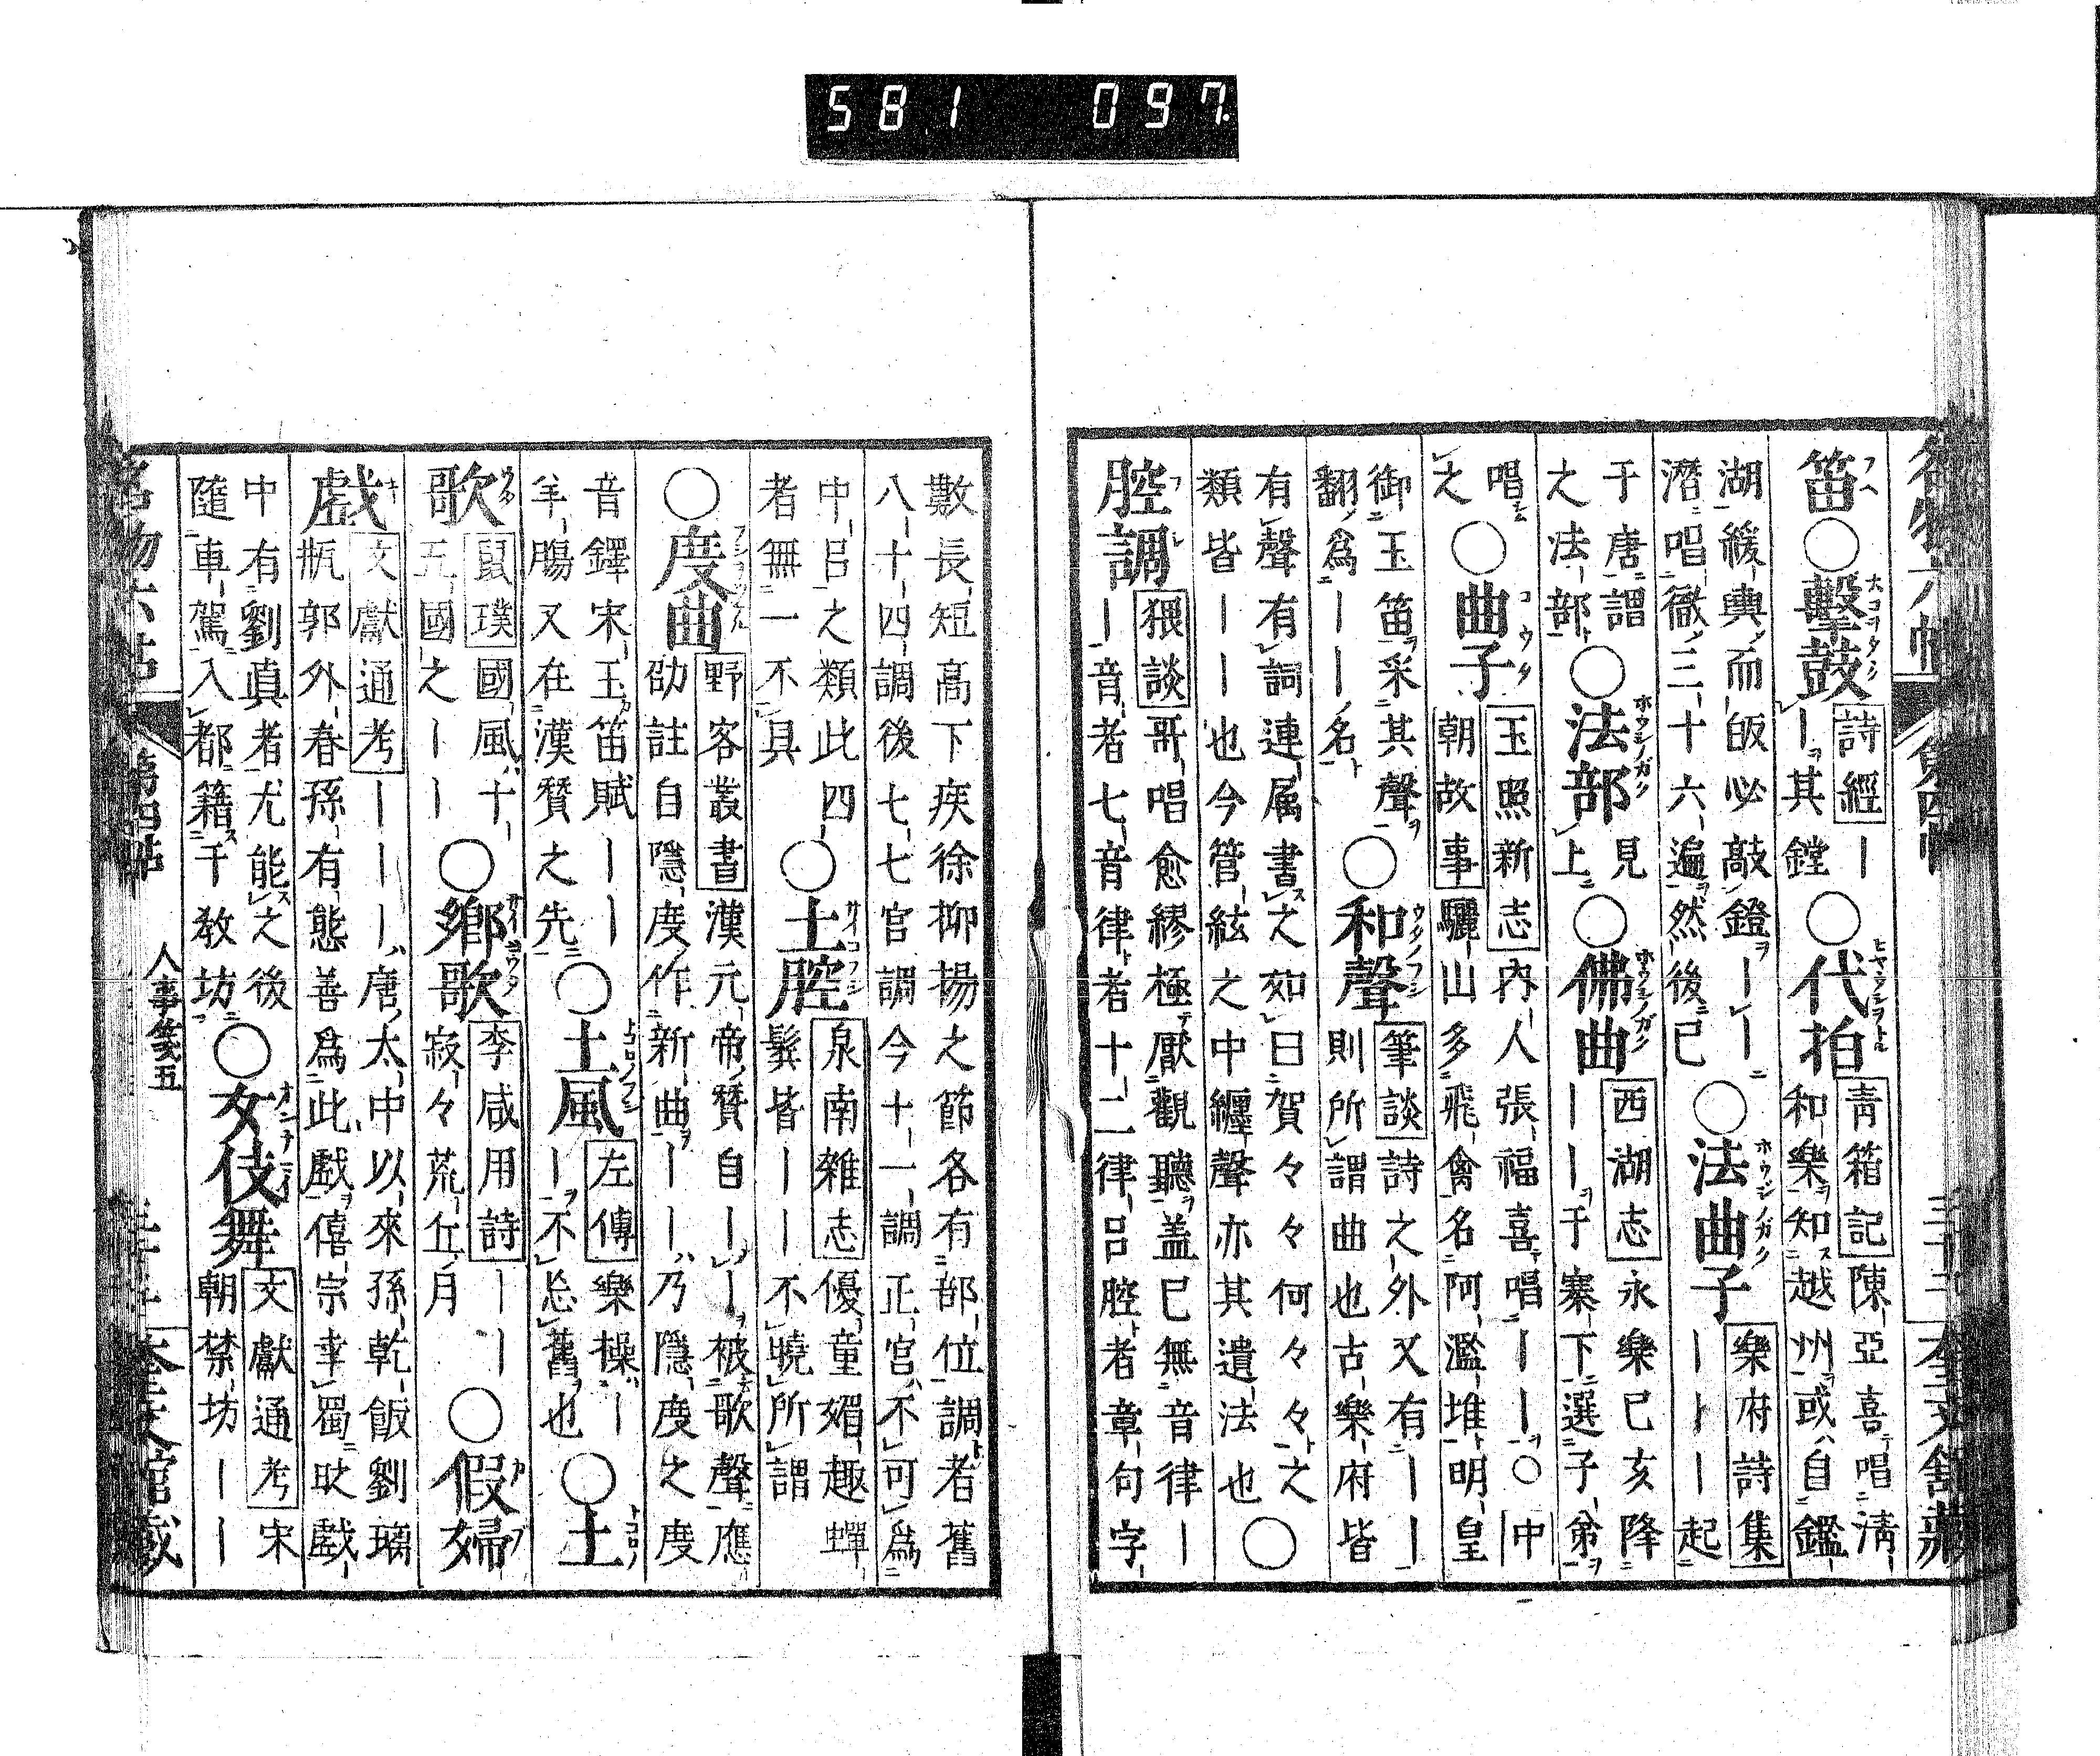 581 097
笛○擊鼓 詩經｜
｜其鏜○代拍 青箱記 陳亞喜唱淸
和樂知越州或自鑑
湖緩輿而皈必敲鐙｜｜
潛唱徹三十六遍然後已○法曲子 樂府詩集
｜｜｜起
于唐謂
之法部○法部 見
上○佛曲 西湖志 永樂巳亥降
｜｜于寨下選子弟
唱
之○曲子 玉照新志 內人張福喜唱｜｜○中
朝故事 驪山多飛禽名阿濫堆明皇
御玉笛采其聲
翻爲｜｜名○和聲 筆談 詩之外又有｜｜
則所謂曲也古樂府皆
有聲有詞連属書之如曰賀々々何々々之
類皆｜｜也今管絃之中纏聲亦其遺法也○
腔調 猥談 哥唱愈繆極厭觀聽盖巳無音律｜
｜音者七音律者十二律呂腔者章句字
數長短高下疾徐抑揚之節各有部位調者舊
八十四調後七七官調今十一調正宮不可爲
中呂之類此四
者無一不具○土腔 泉南雑志 優童媚趣蟬
鬓皆｜｜不曉所謂
○度曲 野客叢書 漢元帝贊自｜｜被歌聲應
劭註自隱度作新曲｜｜乃隱度之度
音鐸宋玉笛賦｜｜
羊膓又在漢贊之先○土風 左傳 樂操｜
｜不忘舊也○土
歌 鼠璞 國風十
五國之｜｜○鄉歌 李咸用詩 ｜｜
寂々荒丘月○假婦
戯 文獻通考 ｜｜｜唐太中以來孫乾飯劉璃
瓶郭外春孫有態善爲此戯僖宗幸蜀時戯
中有劉真者尤能之後
隨車駕入都籍千敎坊○女伎舞 文獻通考 宋
朝禁坊｜｜
名物六帖 第四帖 人事箋五 奎文館藏